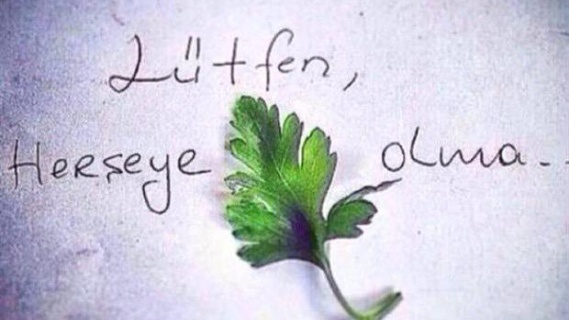 Lütfen,
Herşeye olma..